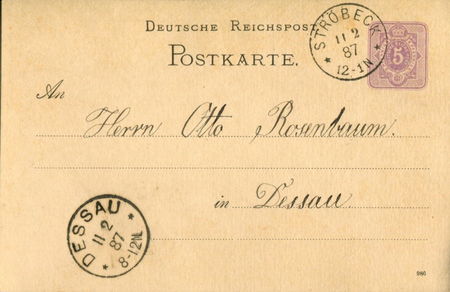 DEUTSCHE REICHSPOST
POSTKARTE.
STRÖBECK
11 2
87
12-1N
5
An
Herrn Otto Rosenbaum.
in Dessau
DESSAU
11 2
87
8-12N.
986